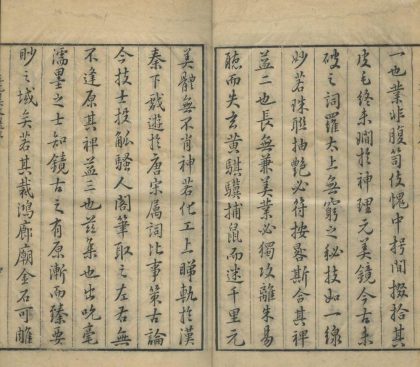 一也業非腹笥伎愧中捋間掇拾其
皮毛終未窺於神理元美鏡今古未
破之詞羅天上無窮之秘技如一線
妙若珠聯抽艶必符按晷斯合其裨
益二也長無兼美業必獨攻離朱易
聽而失玄黃騏驥捕鼠而迷千里元
美體無不肖神若化工上睇軌於漢
秦下戲遊於唐宋属詞比事策古論
今技士投觚騷人閣筆取之左右無
不逢原其裨益三也茲集也出吮毫
濡墨之士知鏡古之有原漸而臻要
眇之域矣若其裁鴻廊廟金石可雕